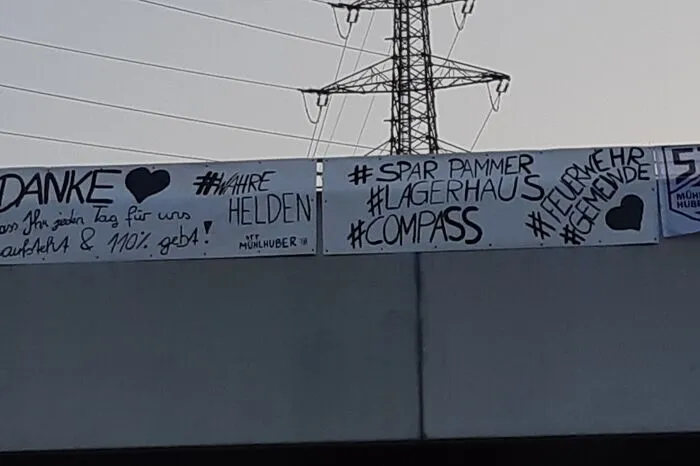 DANKE
#WAHRE
HELDEN
dass Ihr jeden Tag für uns
aufsteht & 110% gebt!
ATT
MÜHLHUBER
#SPAR PAMMER
#LAGERHAUS
#COMPASS
#FEUERWEHR
#GEMEINDE